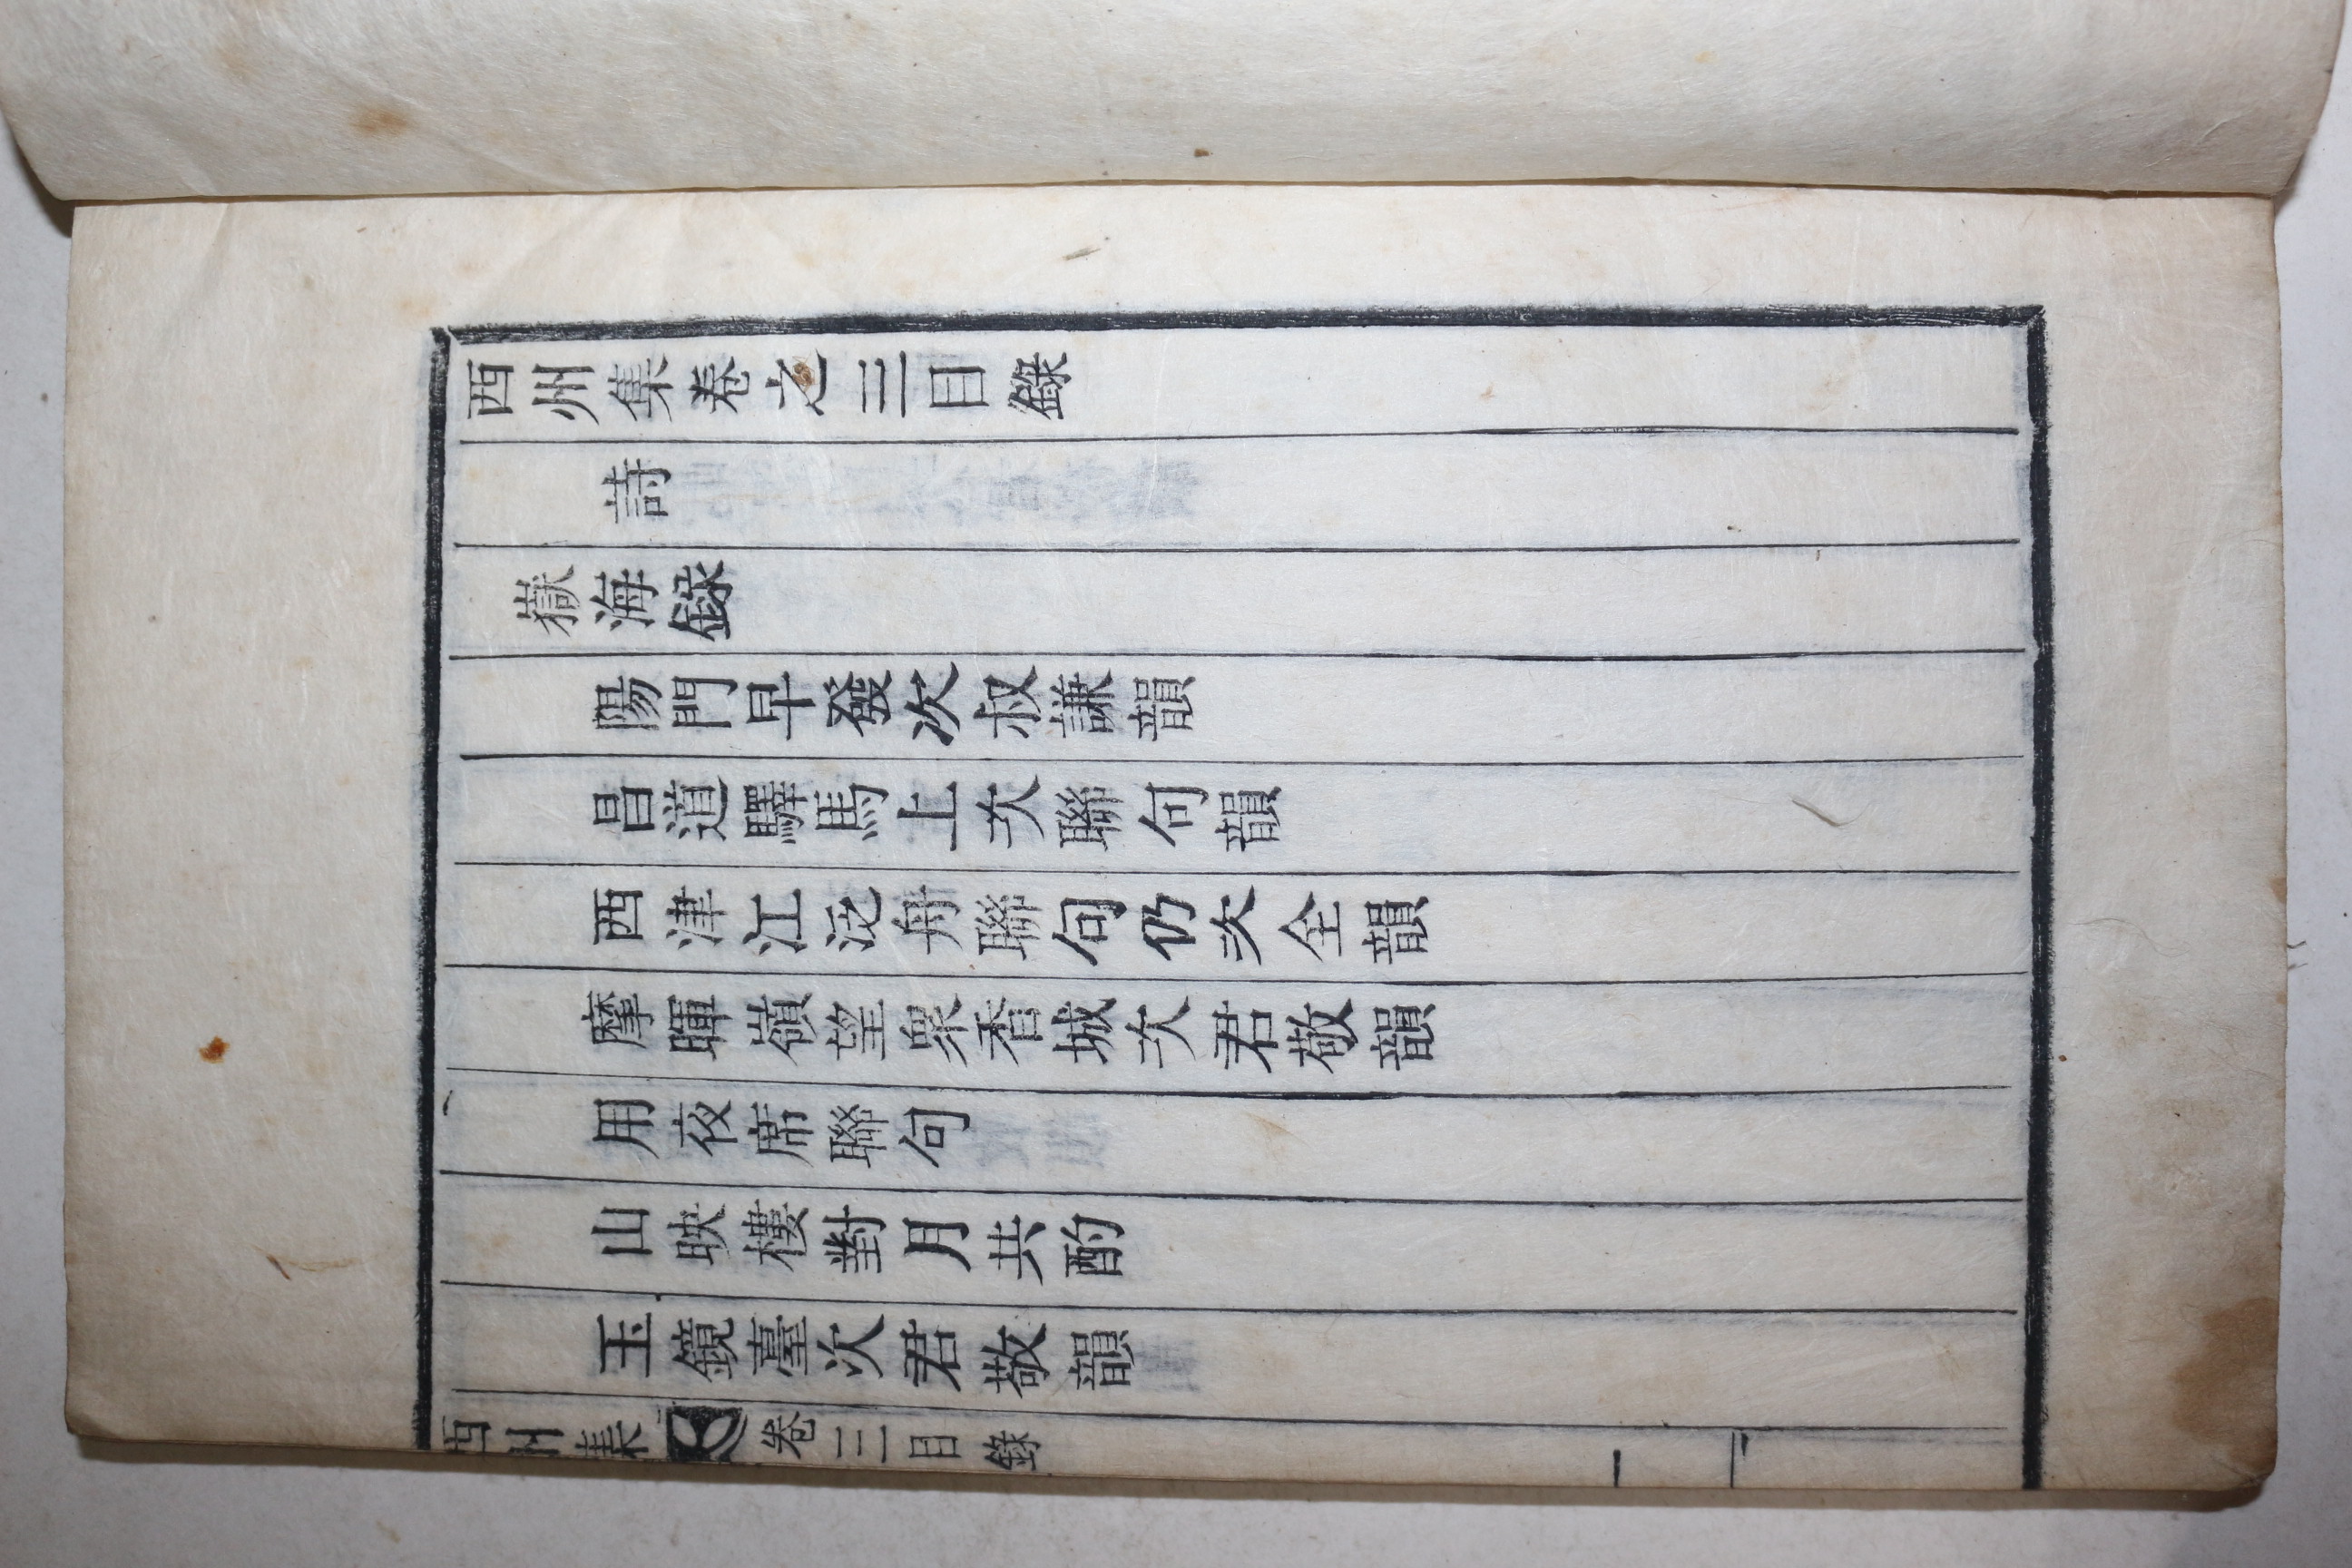 西州集卷之三目錄
詩
嶽海錄
陽門早發次叔謙韻
昌道驛馬上次聯句韻
西津江泛舟聯句仍次仝韻
摩暉嶺望衆香城次君敬韻
用夜席聯句
山映樓對月共酌
玉鏡臺次君敬韻
西州集 卷三目錄 一